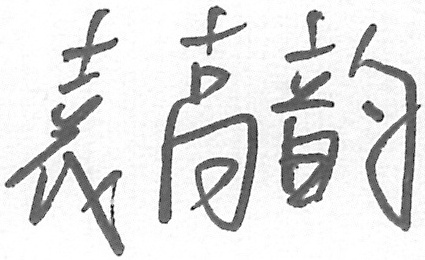 袁高韵